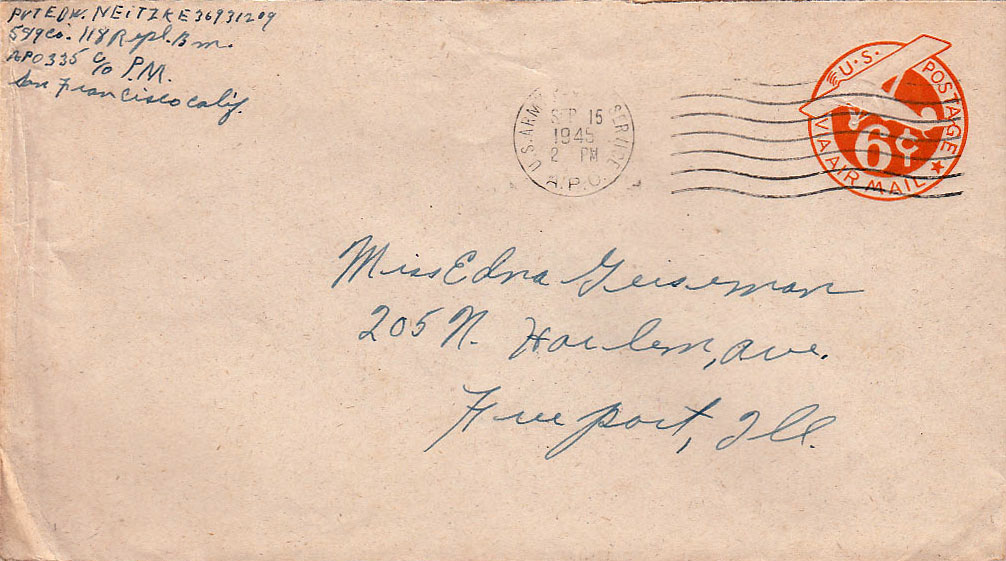 Pvt EDW. NEITZKE 36931209
599 Co. 118 Repl. Bn.
APO 335 c/o P.M.
San Francisco Calif.
U.S. ARMY SERVICE
SEP 15
1945
2 PM
A.P.O.
U.S. POSTAGE
6¢
VIA AIR MAIL
Miss Edna Geiseman
205 N. Harlem, Ave.
Freeport, Ill.